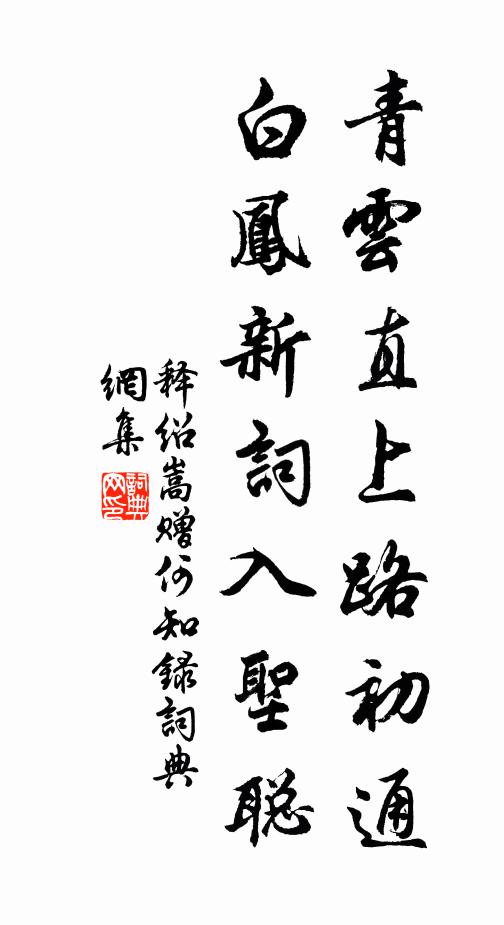 青雲直上路初通
白鳳新詞入聖聡
释紹嵩赠何知録詞典
網集
詞典网印